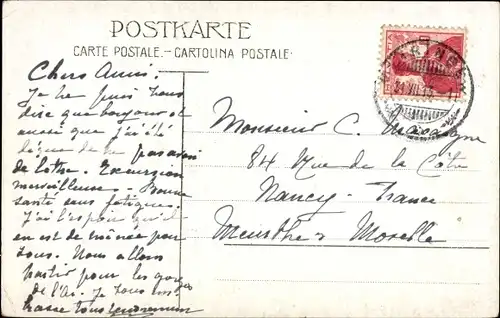 POSTKARTE
CARTE POSTALE.—CARTOLINA POSTALE.
Chers Amis.
Je ne puis vous
dire que bonjour et
aussi que j'ai été
de
de votre. Excursion
merveilleuse. Bonne
santé sans fatigues.
J'ai l'espoir qu'il
en est de même pour
vous. Nous allons
partir pour les
de l'Aar. Je vous em-
brasse tous tendrement
Monsieur C.
84 Rue de la Côte
Nancy - France
Meurthe & Moselle